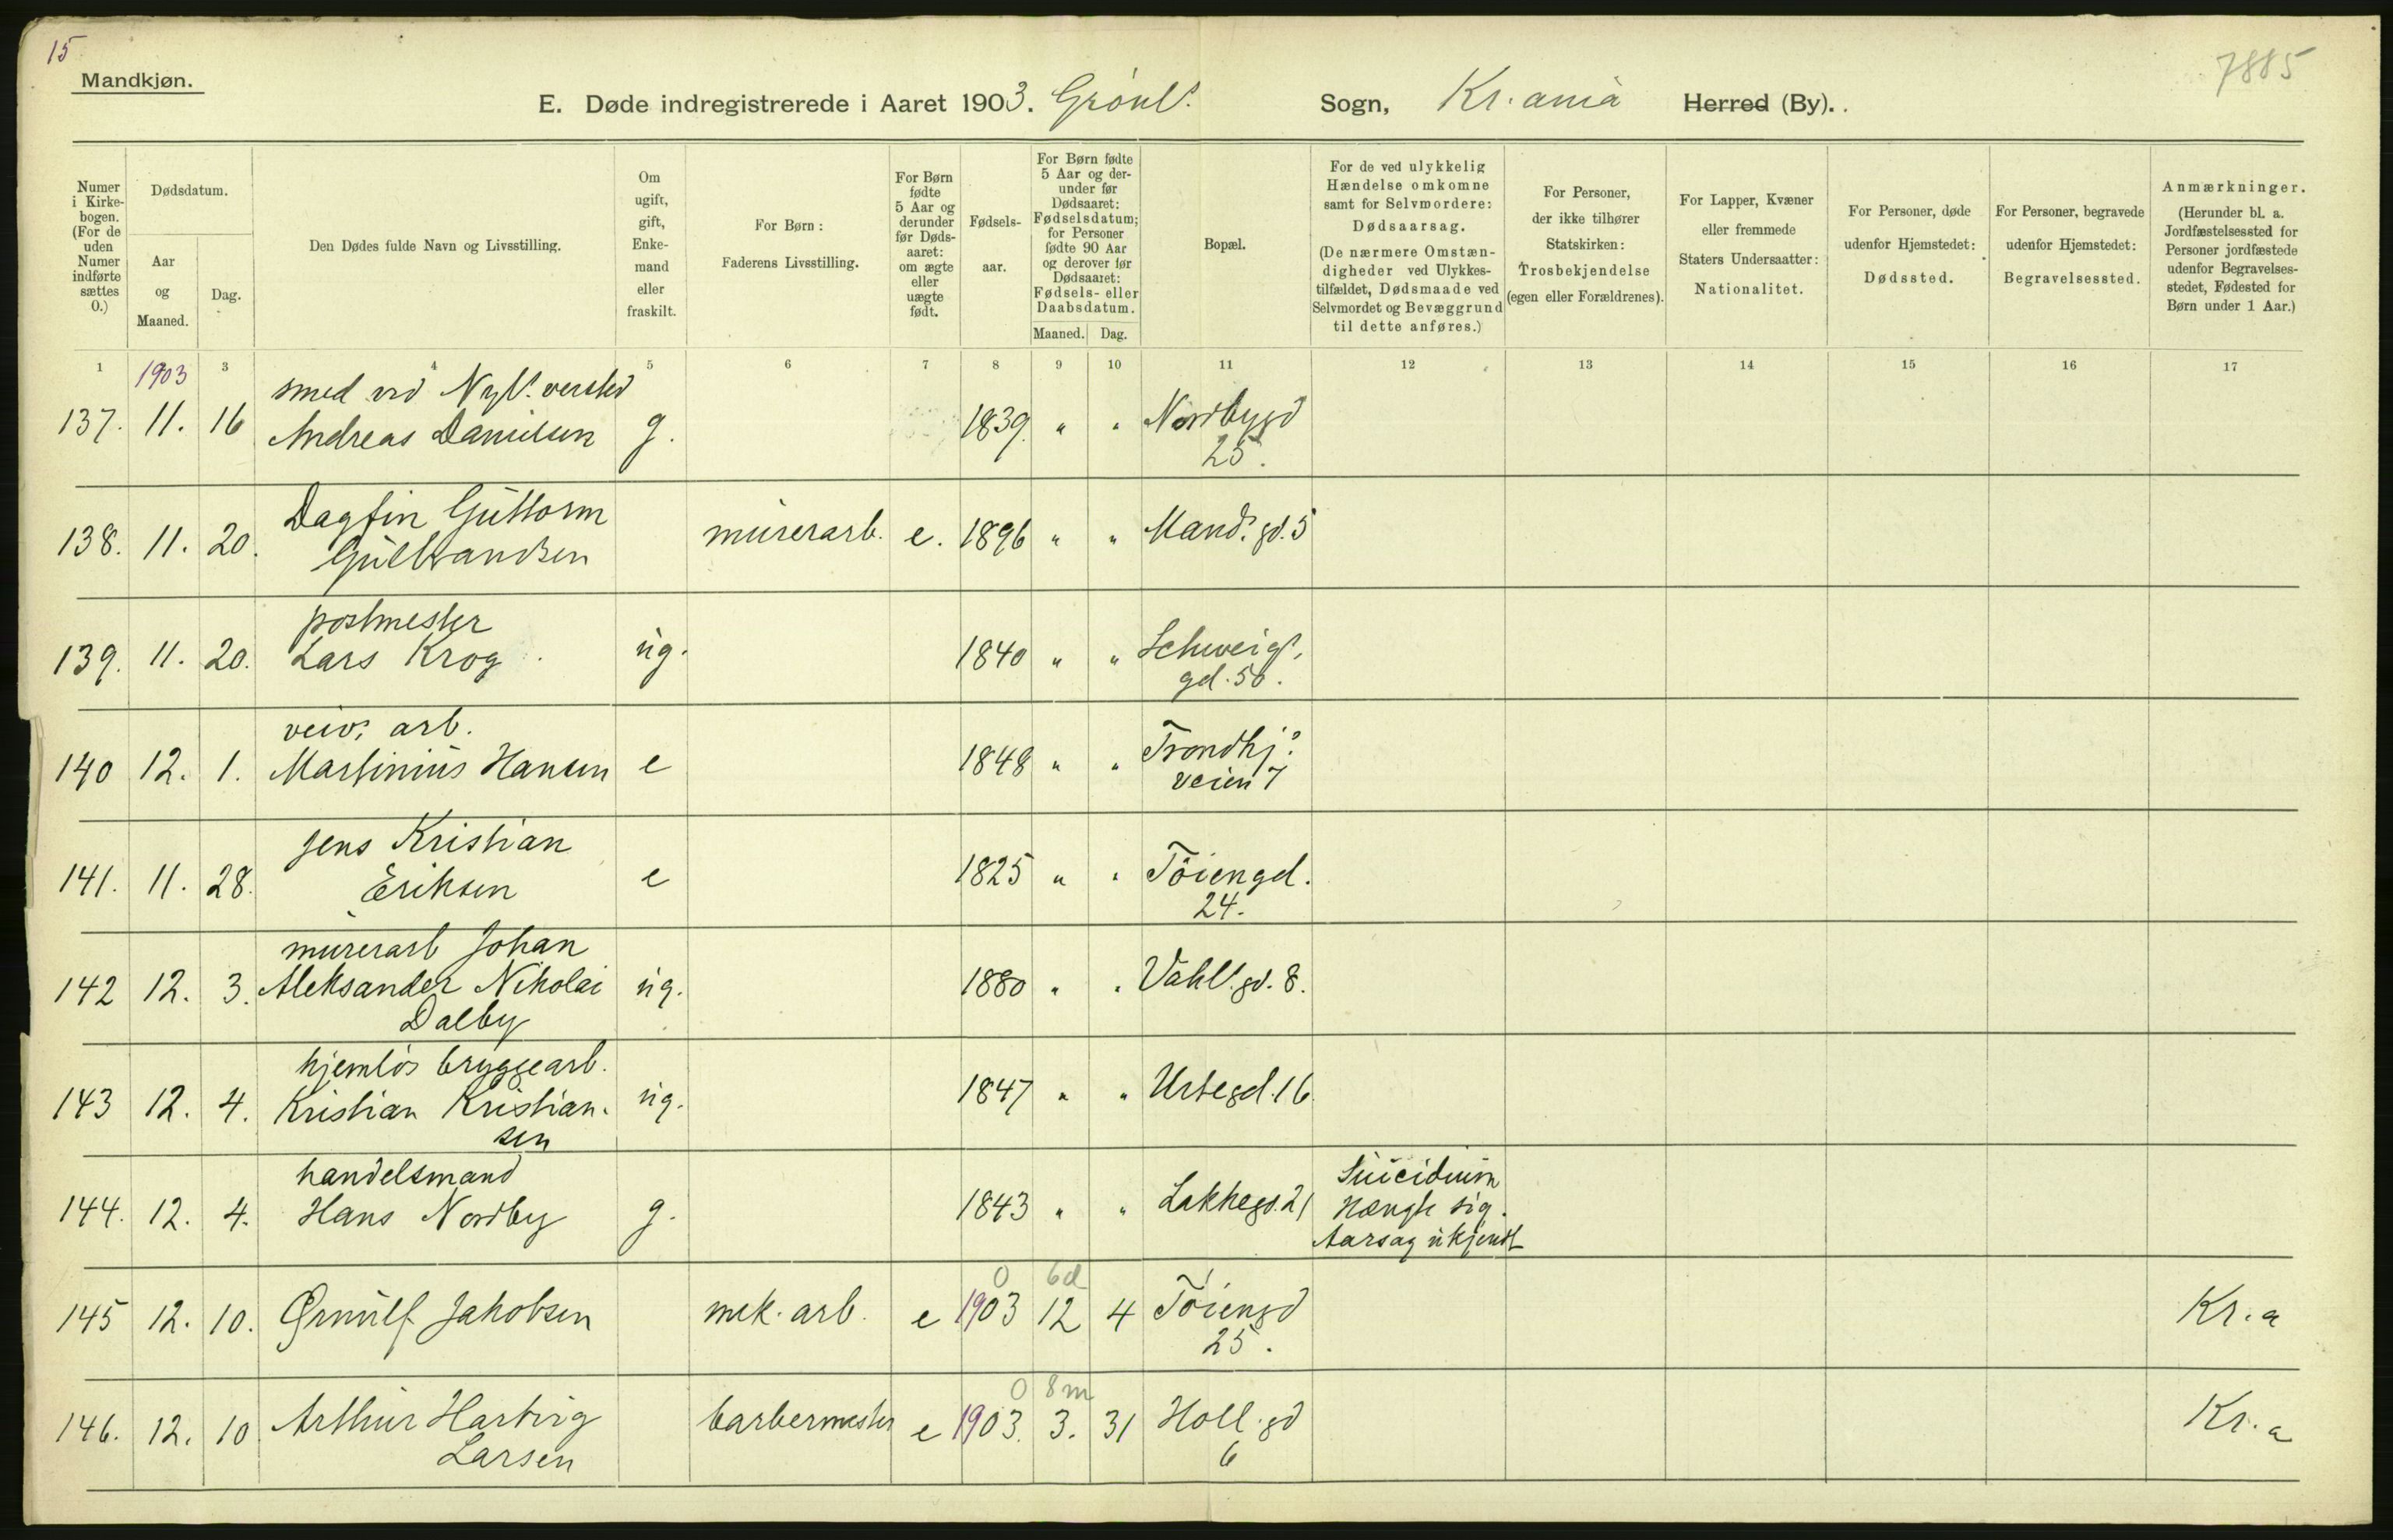 15
7885
Mandkjøn.
E. Døde indregistrerede i Aaret 1903. Grønl. Sogn, Kr.ania Herred (By).
Numer i Kirkebogen. (For de uden Numer indførte sættes 0.)
Dødsdatum.
Aar og Maaned.
Dag.
Den Dødes fulde Navn og Livsstilling.
Om ugift, gift, Enkemand eller fraskilt.
For Børn: Faderens Livsstilling.
For Børn fødte 5 Aar og derunder før Dødsaaret: om ægte eller uægte født.
Fødselsaar.
For Børn fødte 5 Aar og derunder før Dødsaaret: Fødselsdatum; for Personer fødte 90 Aar og derover før Dødsaaret: Fødsels- eller Daabsdatum.
Maaned. Dag.
Bopæl.
For de ved ulykkelig Hændelse omkomne samt for Selvmordere: Dødsaarsag. (De nærmere Omstændigheder ved Ulykkestilfældet, Dødsmaade ved Selvmordet og Bevæggrund til dette anføres.)
For Personer, der ikke tilhører Statskirken: Trosbekjendelse (egen eller Forældrenes).
For Lapper, Kvæner eller fremmede Staters Undersaatter: Nationalitet.
For Personer, døde udenfor Hjemstedet: Dødssted.
For Personer, begravede udenfor Hjemstedet: Begravelsessted.
Anmærkninger. (Herunder bl. a. Jordfæstelsessted for Personer jordfæstede udenfor Begravelsesstedet, Fødested for Børn under 1 Aar.)
1 1903 3 4 5 6 7 8 9 10 11 12 13 14 15 16 17
smed ved Nyl. versted
137. 11. 16 Andreas Danielsen g. 1839. " " Nordbygd
25.
Dagfin Guttorm
138. 11. 20. Gulbrandsen murerarb. e. 1896 " " Mand. gd. 5
postmester
139. 11. 20. Lars Krog ug. 1840 " " Schweig.
gd. 50.
veiv. arb.
140 12. 1. Martinius Hansen e 1848 " " Trondhj.
veien 7
Jens Kristian
141. 11. 28. Eriksen e 1825 " " Tøiengd.
24.
murerarb Johan
142 12. 3. Aleksander Nikolai ug. 1880 " " Vahl. gd. 8.
Dalby
hjemløs bryggearb.
143 12. 4. Kristian Kristian- ug. 1847 " " Urtegd. 16
sen
handelsmand Suicidium
144. 12. 4. Hans Nordby g. 1843 " " Lakkegd. 21 Hængte sig.
Aarsag ukjendt
0 6d
145 12. 10. Ørnulf Jakobsen mek. arb. e 1903 12 4 Tøiengd Kr.a
25.
0 8m
146. 12. 10 Arthur Hartvig barbermester e 1903. 3. 31 Holl. gd Kr.a
Larsen 6